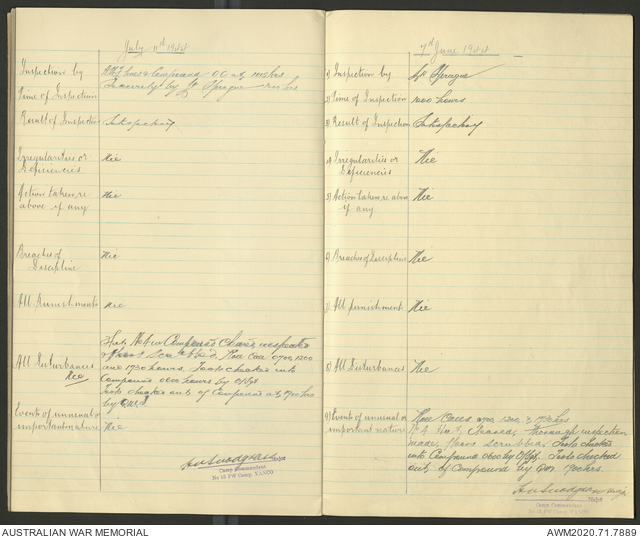 July 11th 1944
Inspection by Lines & Compound O.C. at hrs
Time of Inspection by Lt Sprague hrs
Result of Inspection Satisfactory
Irregularities or Nil
Deficiencies
Action taken, re Nil
above if any
Breaches of Nil
Discipline
All Punishments Nil
Huts, Men's Compound Clean, inspected
floors Scrubbed. Roll Call 0700, 1200
All Disturbances and 1730 hours. Tools checked into
Nil Compound 0600 hours by O/Sgt
Tools checked out of Compound at 1700 hrs
by
Events of unusual or Nil
important nature
Major
Camp Commandant
No 15 PW Camp, YANCO
7th June 1944
1) Inspection by Lt Sprague
2) Time of Inspection 1000 hours
3) Result of Inspection Satisfactory
4) Irregularities or Nil
Deficiencies
5) Action taken, re above Nil
if any
6) Breaches of Discipline Nil
7) All punishments Nil
8) All Disturbances Nil
9) Events of unusual or Roll Calls 0700, 1200, & 1730 hrs
important nature Thorough inspection
made, floors scrubbed. Tools checked
into Compound 0600 by O/Sgt. Tools checked
out of Compound by 1700 hrs.
Major
Camp Commandant
No 15 PW Camp, YANCO
AUSTRALIAN WAR MEMORIAL AWM2020.71.7889